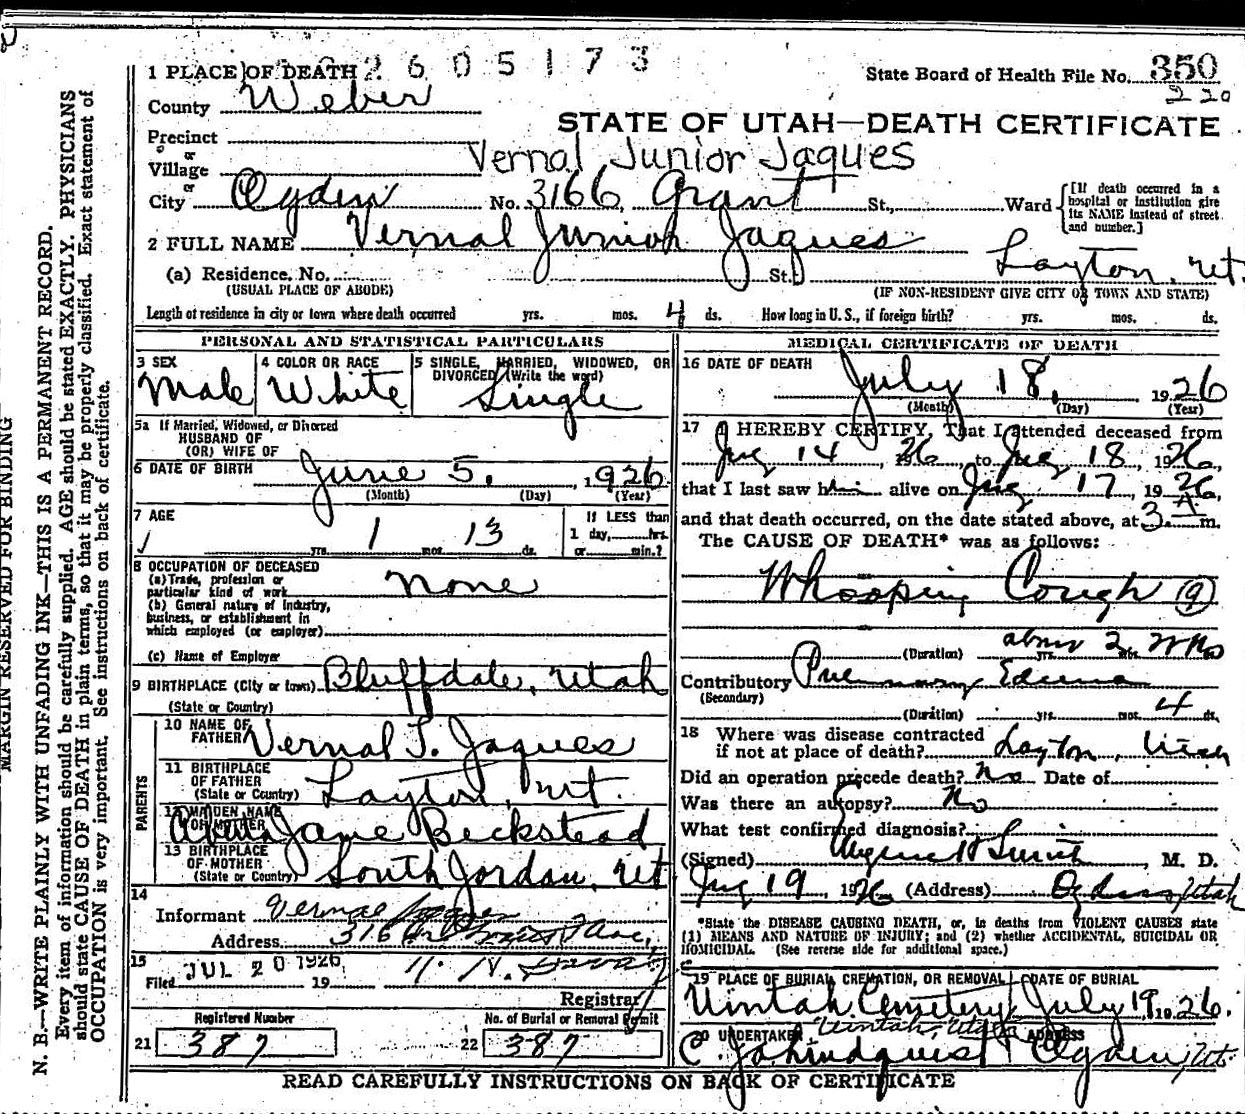 2605173
1 PLACE OF DEATH
State Board of Health File No. 350
220
County Weber
STATE OF UTAH—DEATH CERTIFICATE
Precinct
or
Village
Vernal Junior Jaques
or
City Ogden No. 3166 Grant St., Ward
[If death occurred in a hospital or institution give its NAME instead of street and number.]
2 FULL NAME Vernal Junior Jaques
(a) Residence. No. St. Layton, Ut.
(USUAL PLACE OF ABODE) (IF NON-RESIDENT GIVE CITY OR TOWN AND STATE)
Length of residence in city or town where death occurred yrs. mos. 4 ds. How long in U. S., if foreign birth? yrs. mos. ds.
PERSONAL AND STATISTICAL PARTICULARS
3 SEX 4 COLOR OR RACE 5 SINGLE, MARRIED, WIDOWED, OR DIVORCED (Write the word)
Male White Single
5a If Married, Widowed, or Divorced
HUSBAND OF
(OR) WIFE OF
6 DATE OF BIRTH June 5, 1926
(Month) (Day) (Year)
7 AGE If LESS than
1 day, hrs.
yrs. 1 mos. 13 ds. or min.?
8 OCCUPATION OF DECEASED
(a) Trade, profession or
particular kind of work none
(b) General nature of industry,
business, or establishment in
which employed (or employer)
(c) Name of Employer
9 BIRTHPLACE (City or town) Bluffdale, Utah
(State or Country)
PARENTS
10 NAME OF FATHER Vernal T. Jaques
11 BIRTHPLACE OF FATHER
(State or Country) Layton, Ut.
12 MAIDEN NAME OF MOTHER Jane Beckstead
13 BIRTHPLACE OF MOTHER
(State or Country) South Jordan, Ut
14
Informant Vernal Jaques
Address 3166
15 JUL 20 1926
Filed 19
Registrar
Registered Number No. of Burial or Removal Permit
21 387 22 387
MEDICAL CERTIFICATE OF DEATH
16 DATE OF DEATH
July 18, 1926
(Month) (Day) (Year)
17 I HEREBY CERTIFY, That I attended deceased from
14, 1926 to 18, 1926,
that I last saw him alive on 17, 1926,
and that death occurred, on the date stated above, at 3 A m.
The CAUSE OF DEATH* was as follows:
Whooping Cough (9)
(Duration) about 2 wks
Contributory Edema
(Secondary)
(Duration) yrs. mos. 4 ds.
18 Where was disease contracted
if not at place of death? Layton, Utah
Did an operation precede death? No Date of
Was there an autopsy? No
What test confirmed diagnosis?
(Signed) Smith, M. D.
19 1926 (Address) Ogden, Utah
*State the DISEASE CAUSING DEATH, or, in deaths from VIOLENT CAUSES state
(1) MEANS AND NATURE OF INJURY; and (2) whether ACCIDENTAL, SUICIDAL OR
HOMICIDAL. (See reverse side for additional space.)
19 PLACE OF BURIAL, CREMATION, OR REMOVAL DATE OF BURIAL
Uintah Cemetery July 19, 1926.
Uintah, Utah
20 UNDERTAKER ADDRESS
Lindquist Ogden, Ut.
READ CAREFULLY INSTRUCTIONS ON BACK OF CERTIFICATE
MARGIN RESERVED FOR BINDING
N. B.—WRITE PLAINLY WITH UNFADING INK—THIS IS A PERMANENT RECORD.
Every item of information should be carefully supplied. AGE should be stated EXACTLY. PHYSICIANS
should state CAUSE OF DEATH in plain terms, so that it may be properly classified. Exact statement of
OCCUPATION is very important. See instructions on back of certificate.